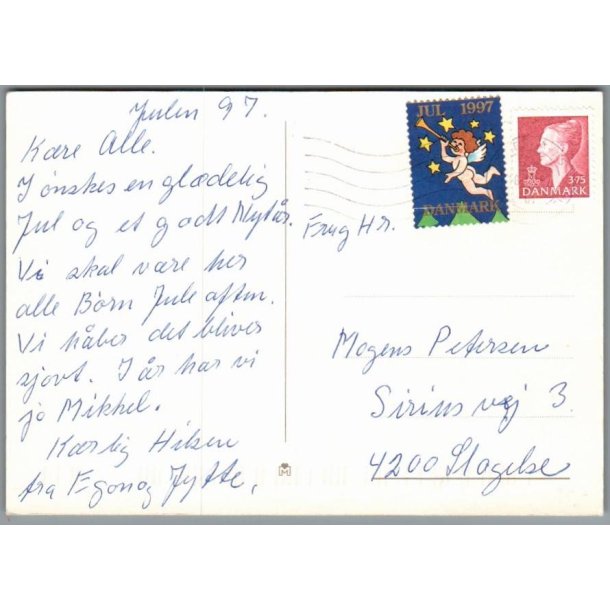 Julen 97.
Kære Alle.
I ønskes en glædelig
Jul og et godt Nytår.
Vi skal være her
alle Børn Jule aften.
Vi håber det bliver
sjovt. I år har vi
jo Mikkel.
Kærlig Hilsen
fra Egon og Jytte.
JUL 1997
DANMARK
375
DANMARK
Frug Hr.
Mogens Petersen
Sirius vej 3
4200 Slagelse
M